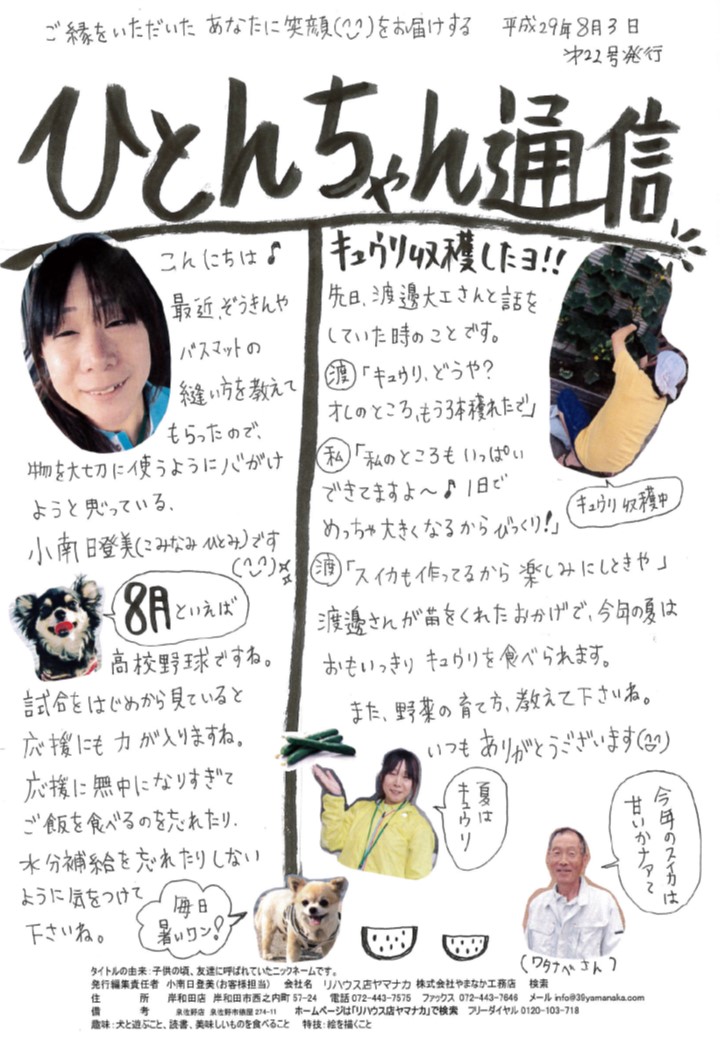 ご縁をいただいた あなたに笑顔(^^)をお届けする 平成29年8月3日
第22号発行
ひとんちゃん通信
こんにちは♪
最近、ぞうきんや
バスマットの
縫い方を教えて
もらったので、
物を大切に使うように心がけ
ようと思っている、
小南日登美(こみなみひとみ)です
(^^)
8月といえば
高校野球ですね。
試合をはじめから見ていると
応援にも力が入りますね。
応援に無中になりすぎて
ご飯を食べるのを忘れたり、
水分補給を忘れたりしない
ように気をつけて
下さいね。
毎日
暑いワン!
キュウリ収穫したヨ!!
先日、渡邊大工さんと話を
していた時のことです。
渡「キュウリ、どうや?
オレのところ、もう3本穫れたで」
私「私のところもいっぱい
できてますよ〜♪1日で
めっちゃ大きくなるからびっくり!」
渡「スイカも作ってるから楽しみにしときや」
渡邊さんが苗をくれたおかげで、今年の夏は
おもいっきりキュウリを食べられます。
また、野菜の育て方、教えて下さいね。
いつもありがとうございます(^^)
キュウリ収穫中
夏は
キュウリ
今年のスイカは
甘いかナァて
(ワタナベさん)
タイトルの由来:子供の頃、友達に呼ばれていたニックネームです。
発行編集責任者 小南日登美(お客様担当) 会社名 リハウス店ヤマナカ 株式会社やまなか工務店 検索
住 所 岸和田店 岸和田市西之内町57-24 電話072-443-7575 ファックス 072-443-7646 メール info@39yamanaka.com
備 考 泉佐野店 泉佐野市俵屋274-11 ホームページは「リハウス店ヤマナカ」で検索 フリーダイヤル 0120-103-718
趣味:犬と遊ぶこと、読書、美味しいものを食べること 特技:絵を描くこと